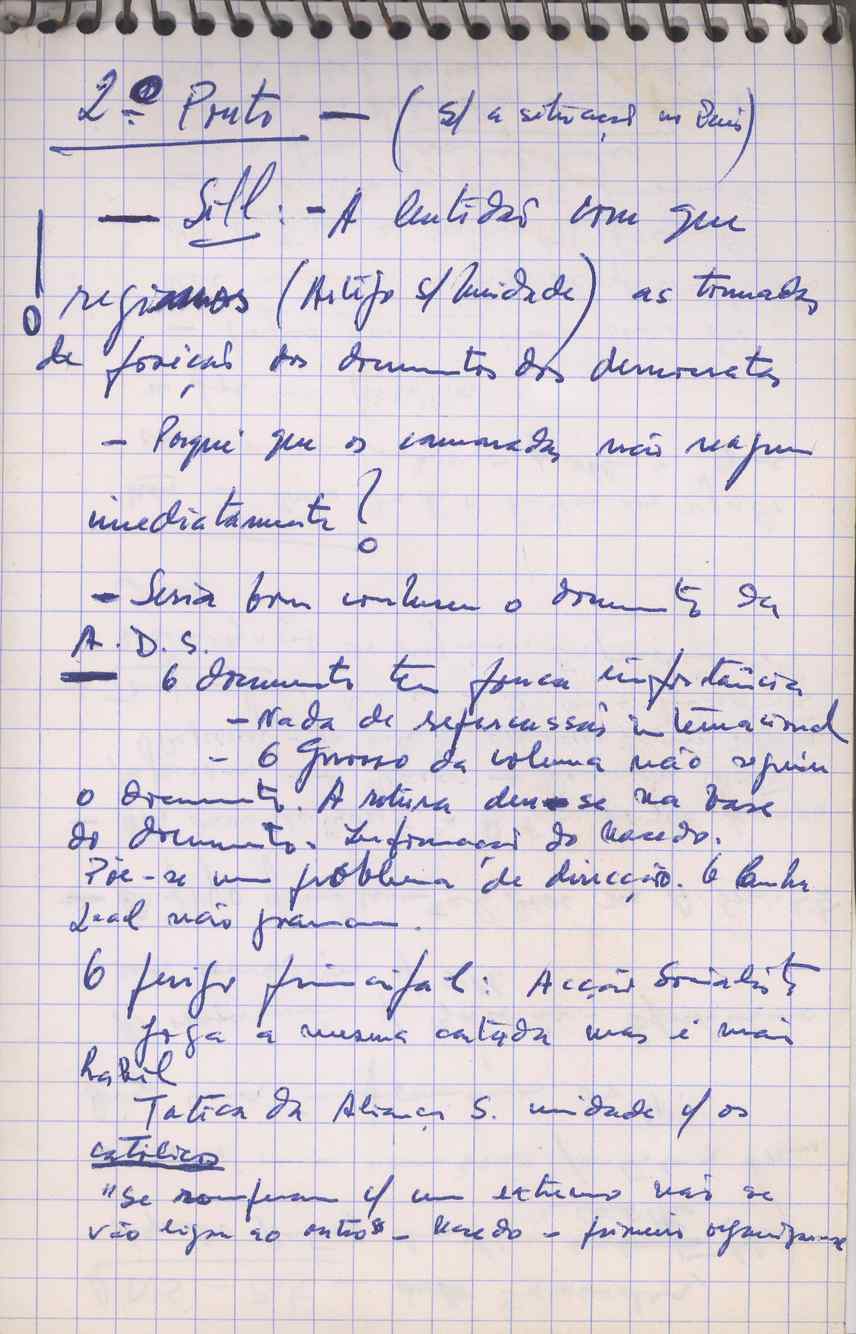 2º Ponto — (s/ a situação no País)
— Sill: - A lentidão com que
regimos (Artigo s/ Unidade) as tomadas
de posição dos documentos dos democratas
- Porquê que os camaradas não reagem
imediatamente?
- Seria bom conhecer o documento da
A.D.S.
— O documento tem pouca importância
- Nada de repercussão internacional
- O Grosso da coluna não seguiu
o documento. A rotura deu-se na base
do documento. Informação do Macedo.
Põe-se um problema de direcção. O Cunha
Leal não gramam.
O perigo principal: Acção Socialista
Joga a mesma cartada mas é mais
habil
Tatica da Aliança S. unidade c/ os
católicos
"Se romperam c/ um extremo não se
vão ligar ao outro" - Macedo - primeiro organizam-se